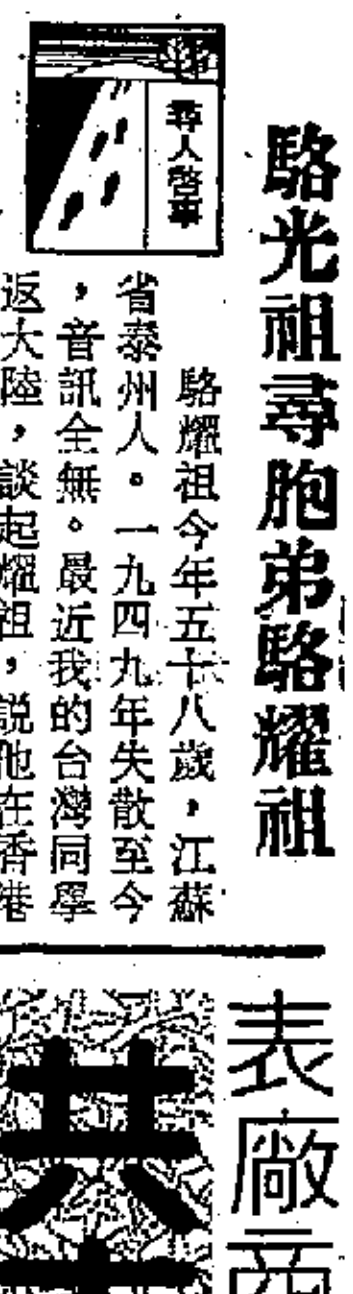 駱光祖尋胞弟駱耀祖
尋人啓事
駱耀祖今年五十八歲，江蘇
省泰州人。一九四九年失散至今
，音訊全無。最近我的台灣同學
返大陸，談起耀祖，説他在香港
表廠商
共